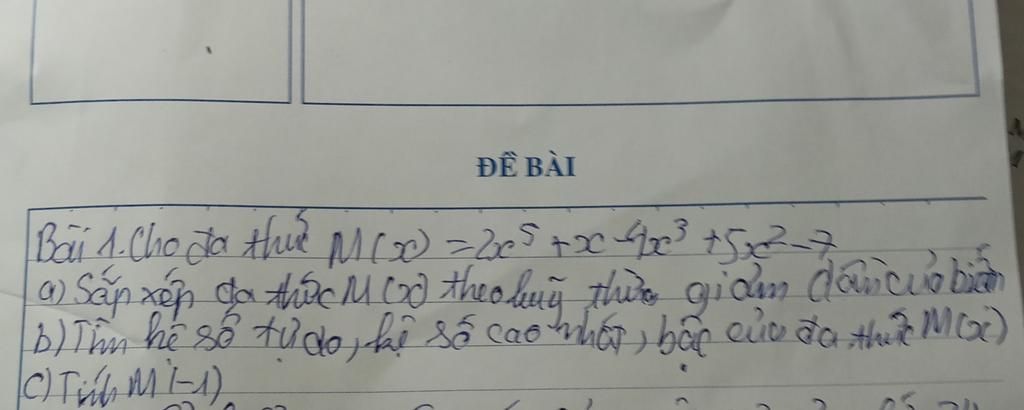 ĐỀ BÀI
Bài 1. Cho đa thức M(x) = 2x⁵ + x - 4x³ + 5x² - 7
a) Sắp xếp đa thức M(x) theo luỹ thừa giảm dần của biến
b) Tìm hệ số tự do, hệ số cao nhất, bậc của đa thức M(x)
c) Tính M(-1)